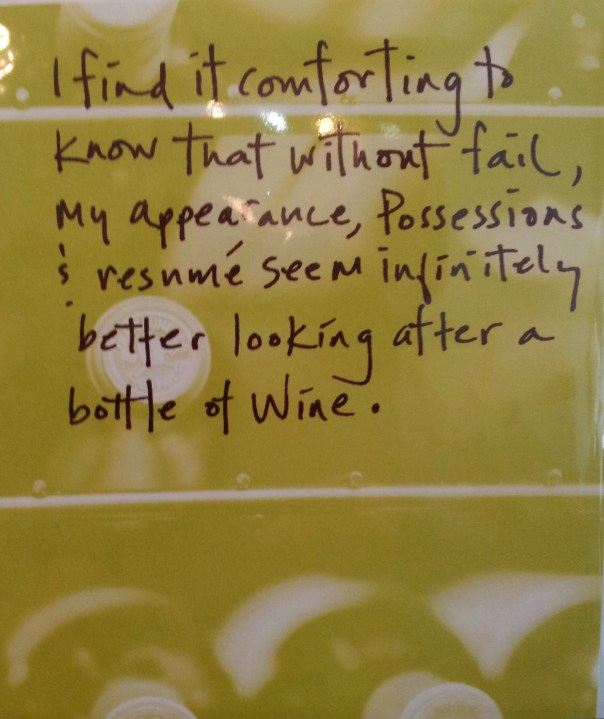 I find it comforting to
know that without fail,
my appearance, Possessions
& resumé seem infinitely
better looking after a
bottle of Wine.